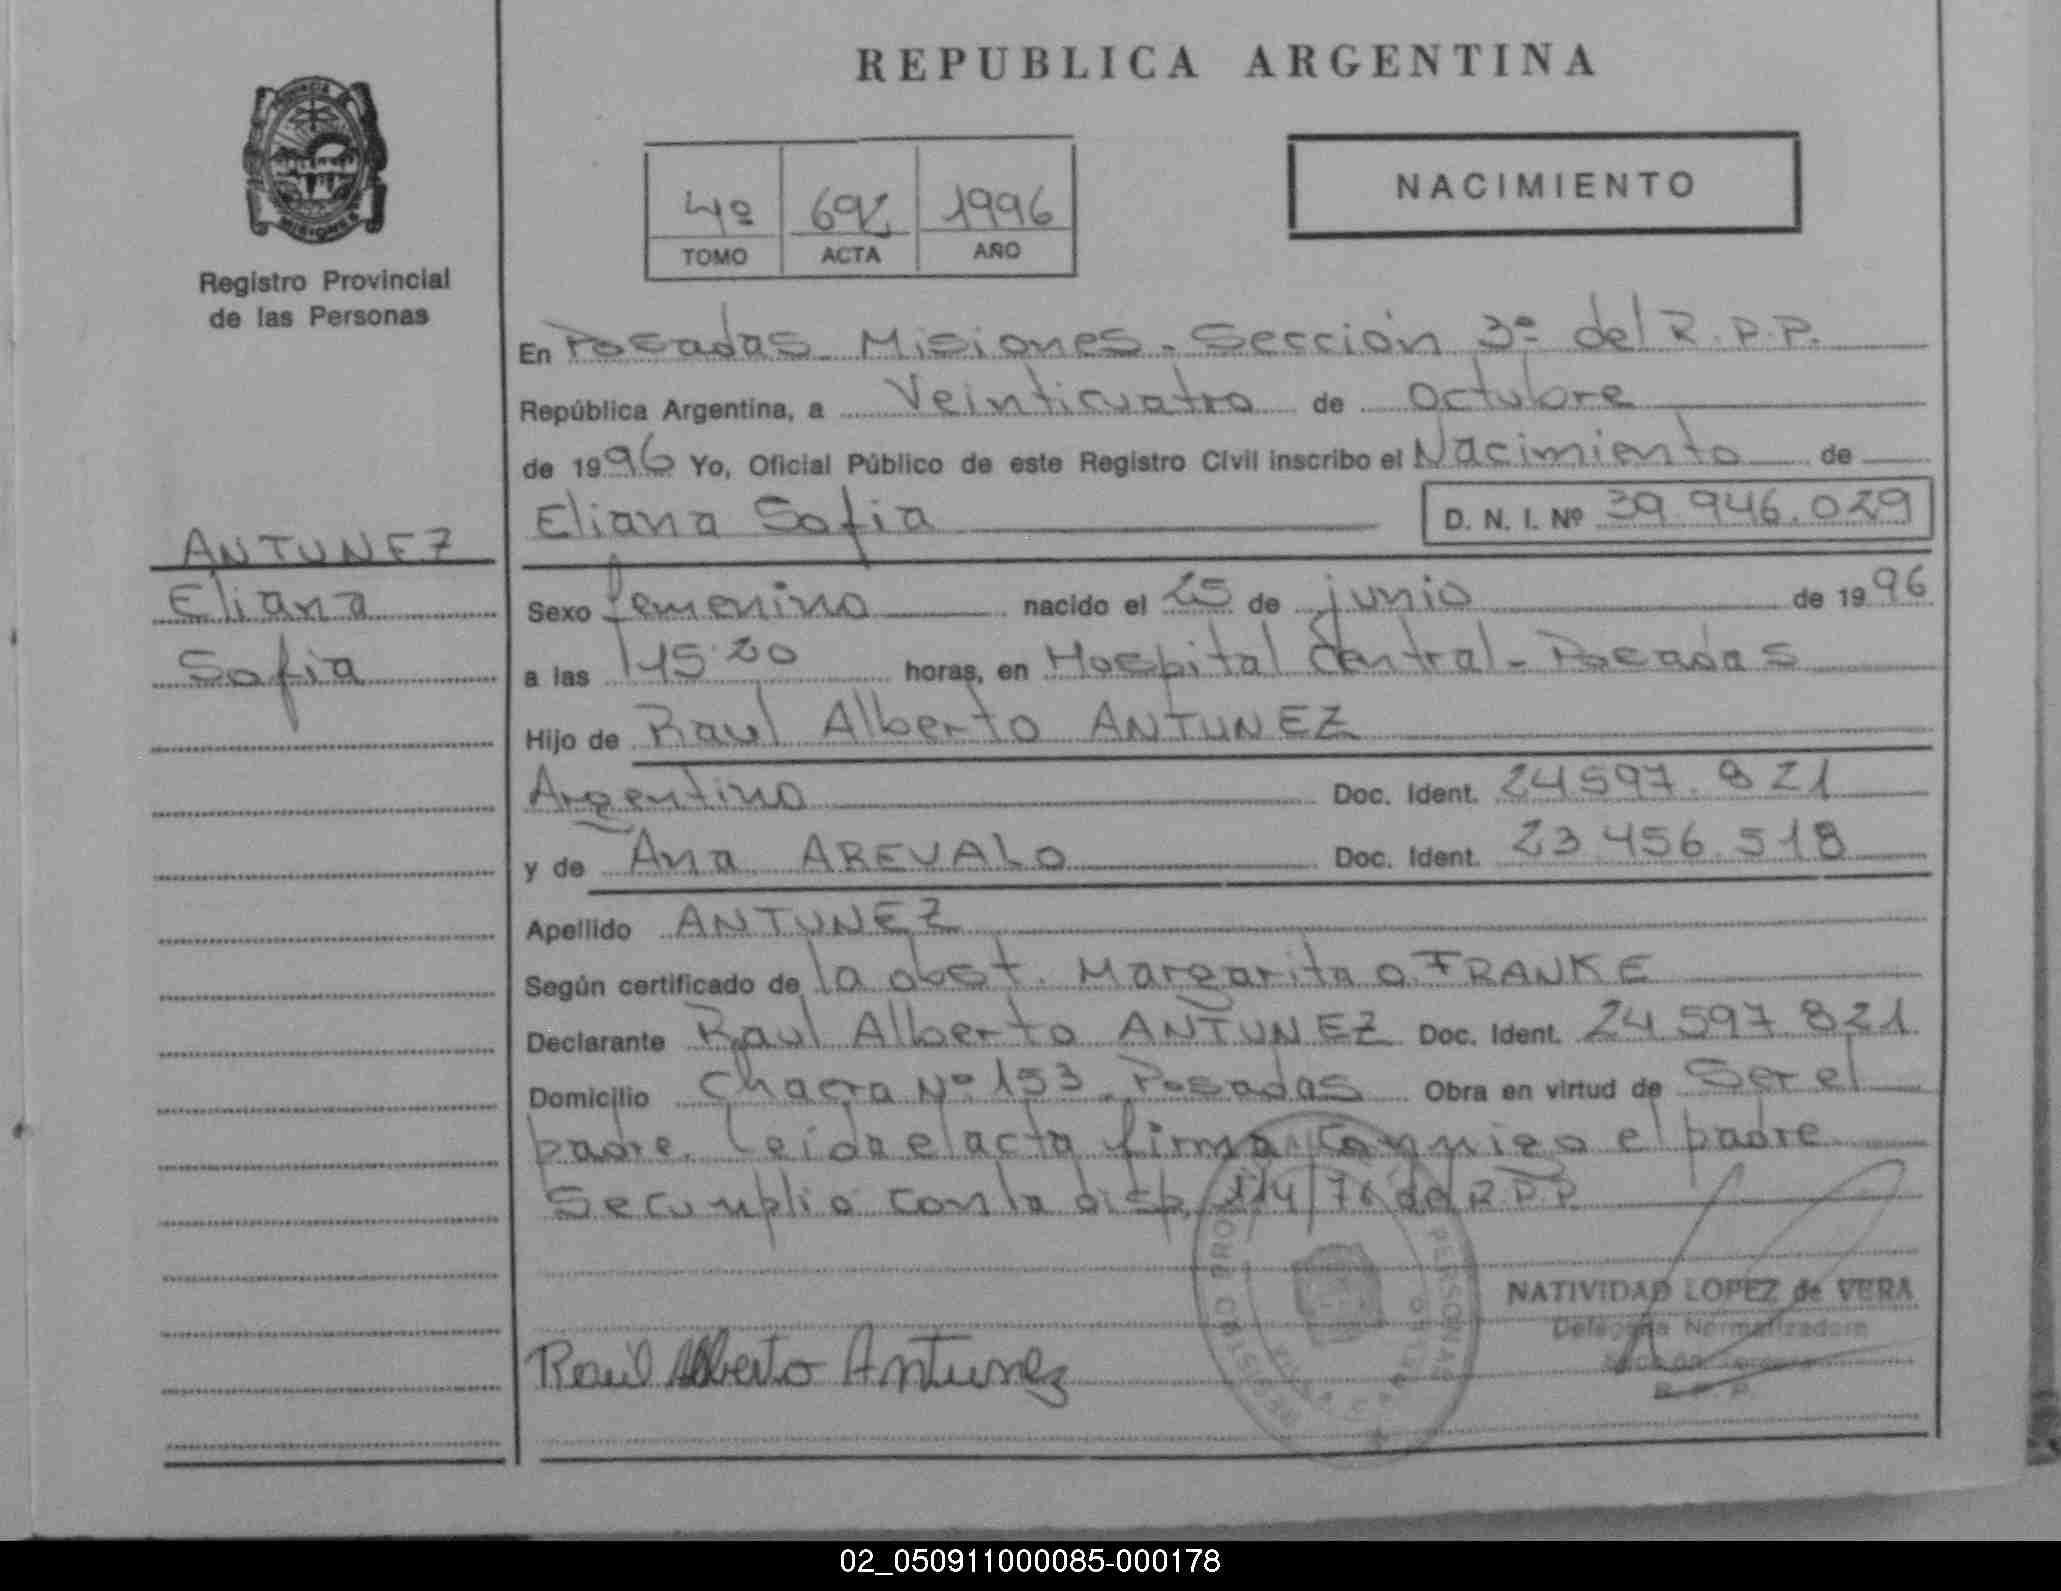 REPUBLICA ARGENTINA
PROVINCIA DE
MISIONES
Registro Provincial
de las Personas
4º 692 1996
TOMO ACTA AÑO
NACIMIENTO
En Posadas Misiones - Sección 3ª del R.P.P.
República Argentina, a Veinticuatro de Octubre
de 1996 Yo, Oficial Público de este Registro Civil inscribo el Nacimiento de
Eliana Sofia D. N. I. Nº 39 946.029
ANTUNEZ
Eliana
Sofia
Sexo femenino nacido el 25 de junio de 1996
a las 15:20 horas, en Hospital Central - Posadas
Hijo de Raul Alberto ANTUNEZ
Argentino Doc. Ident. 24 597.821
y de Ana AREVALO Doc. Ident. 23 456.518
Apellido ANTUNEZ
Según certificado de la obst. Margarita O. FRANKE
Declarante Raul Alberto ANTUNEZ Doc. Ident. 24 597.821
Domicilio Chacra Nº 153 - Posadas Obra en virtud de Ser el
padre. Leida el acta firma conmigo el padre
Se cumplio con la disp. 114/76 del R.P.P.
NATIVIDAD LOPEZ de VERA
Delegada Normalizadora
R. P. P.
Raul Alberto Antunez
02_050911000085-000178